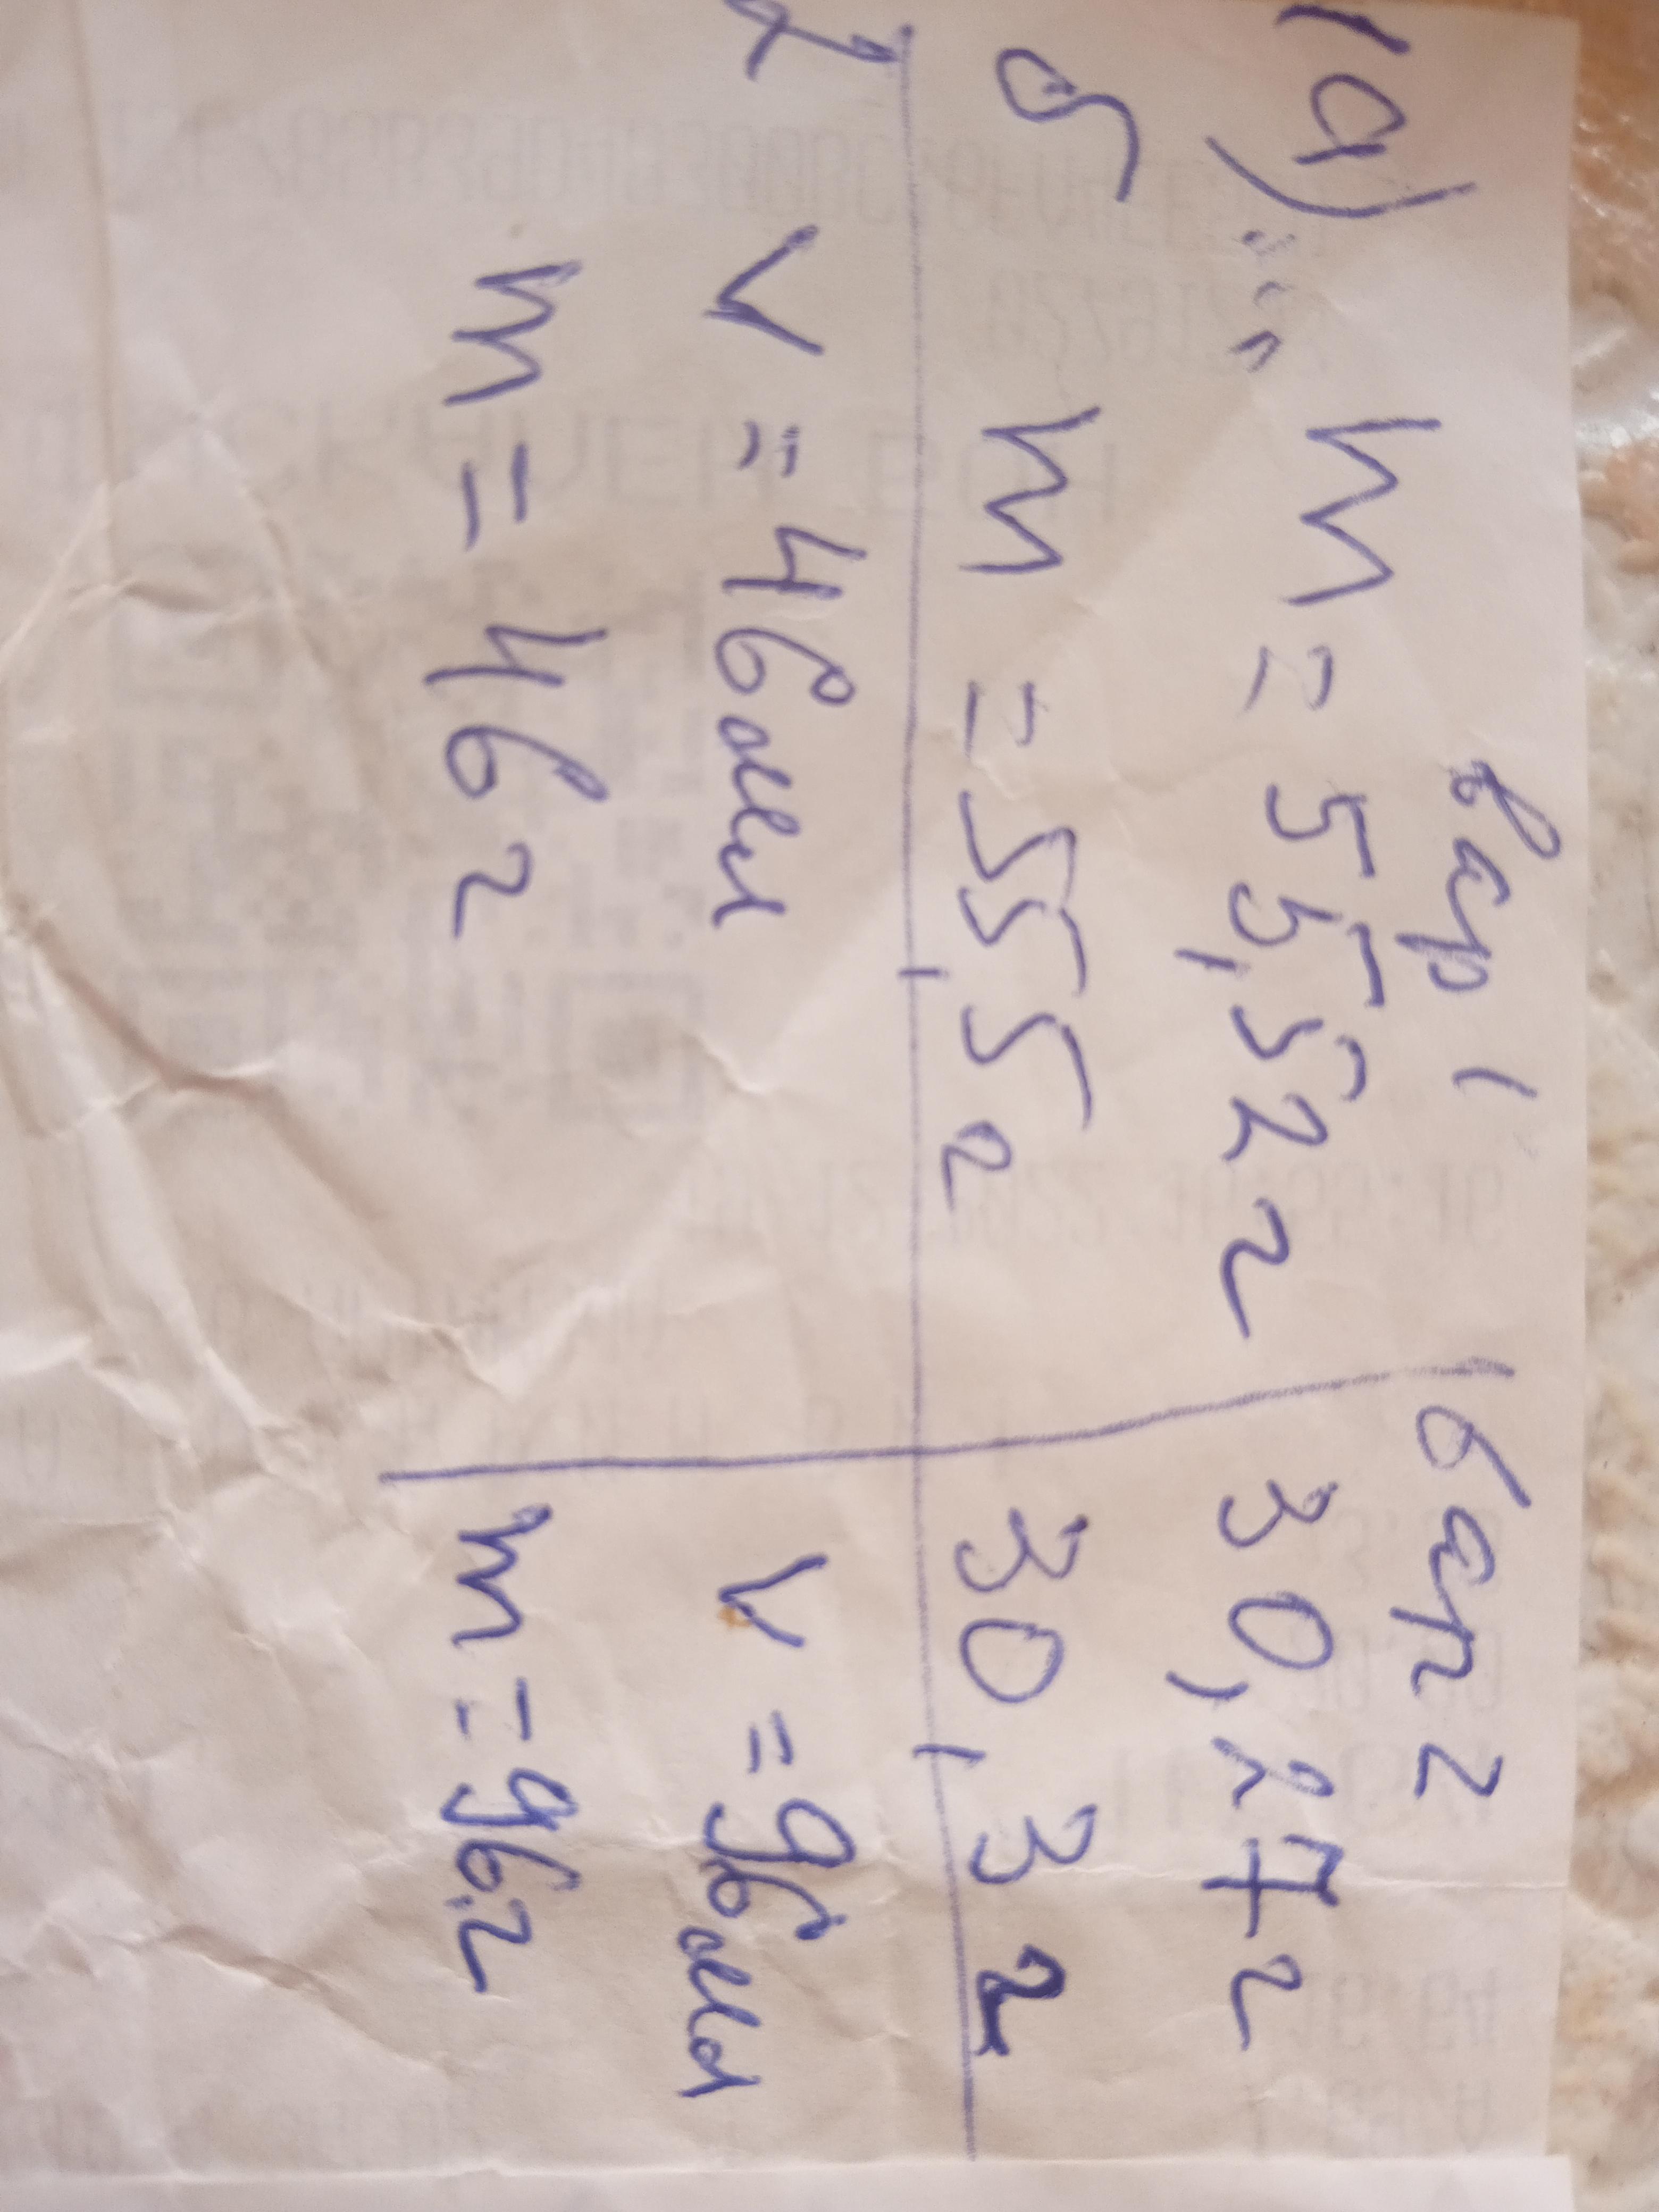 вар 1 вар 2
1а) m = 55,52 г 30,27 г
б m = 55,5 г 30,3 г
2 V = 46 V = 96
m = 46 г m = 96 г